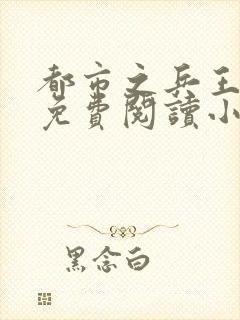 都市之兵王
免費閱讀小
黑念白